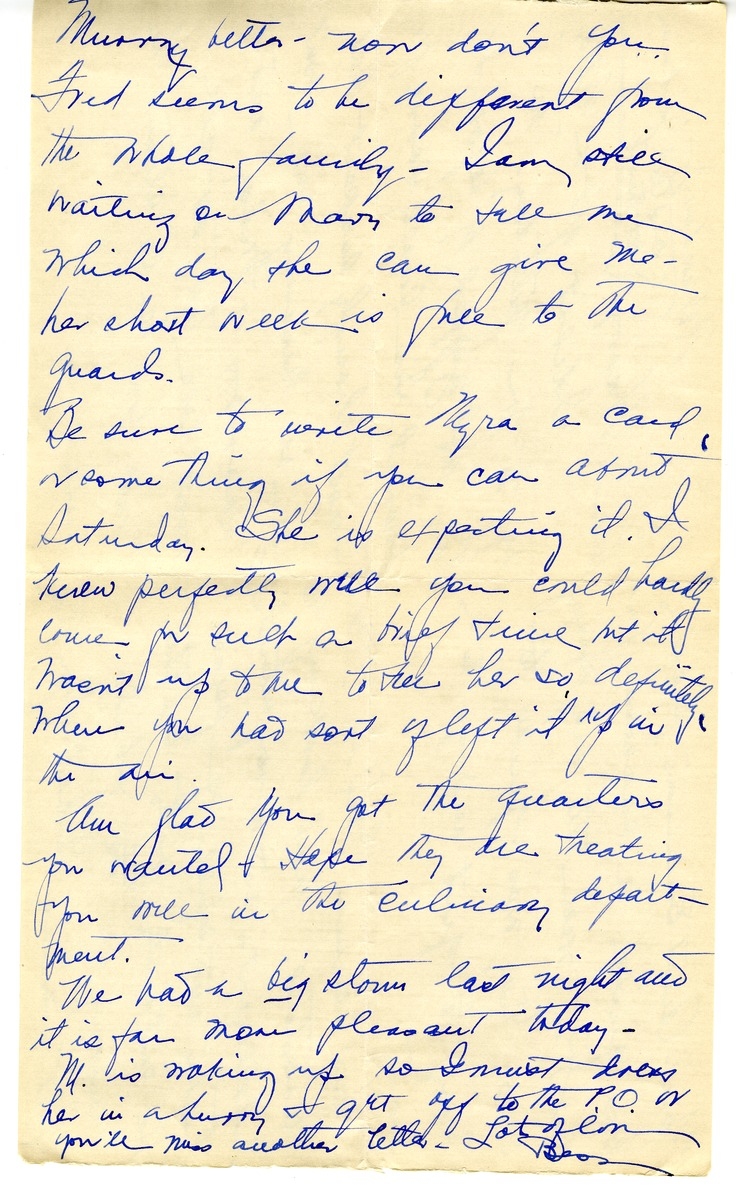 Murray better - now don't you.
Fred seems to be different from
the whole family - I am still
waiting on Mary to tell me
which day she can give me -
her short week is free to the
guards.
Be sure to write Myra a card,
or something if you can about
Saturday. She is expecting it. I
knew perfectly well you could hardly
come for such a brief time but it
wasn't up to me to tell her so definitely,
when you had sort of left it up in
the air.
Am glad you got the quarters
you wanted & Hope they are treating
you well in the culinary depart-
ment.
We had a big storm last night and
it is far more pleasant today -
M. is waking up so I must dress
her in a hurry & get off to the P.O. or
you'll miss another letter - Lots of love
Bess